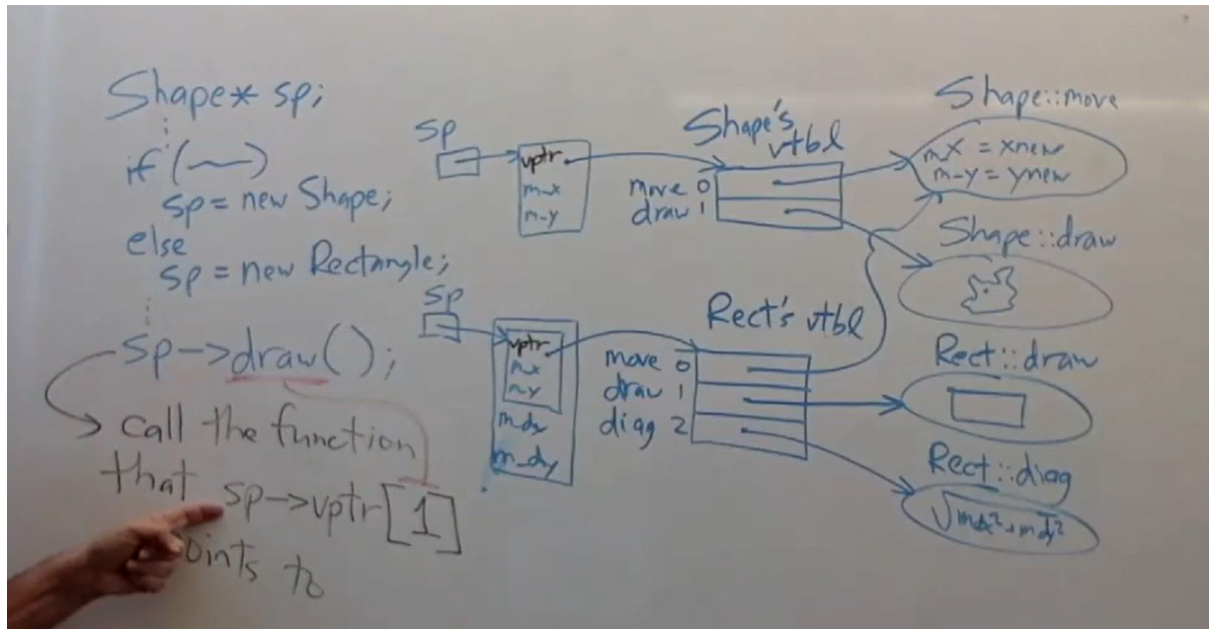 Shape* sp;
if (~)
sp = new Shape;
else
sp = new Rectangle;
sp->draw();
call the function
that sp->vptr[1]
points to
sp
vptr
m_x
m_y
Shape's
vtbl
move 0
draw 1
Shape::move
m_x = xnew
m_y = ynew
Shape::draw
sp
vptr
m_x
m_y
m_dx
m_dy
Rect's vtbl
move 0
draw 1
diag 2
Rect::draw
Rect::diag
√m_dx²+m_dy²